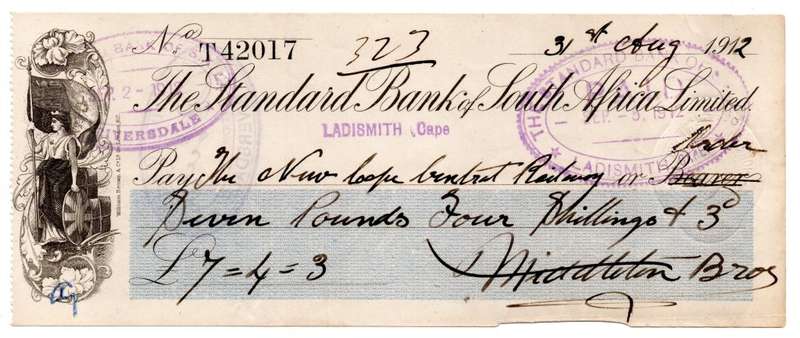 No. T 42017 323 31st Aug 1912
The Standard Bank of South Africa Limited.
LADISMITH Cape
Order
Pay The New Cape Central Railway or Bearer
Seven Pounds Four Shillings & 3d
£7=4=3 Middleton Bros
BANK OF S
2-1
IVERSDALE
THE STANDARD BANK OF
PAID
SEP. -5. 1912
LADISMITH